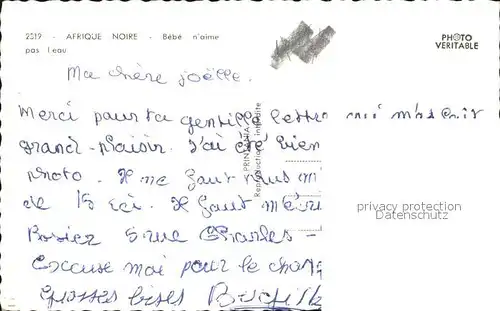 2519 - AFRIQUE NOIRE - Bébé n'aime
pas l'eau
PHOTO
VERITABLE
Ma chère joëlle.
Merci pour ta gentille lettre qui m'a fait
grand plaisir. J'ai été bien
photo. Il ne faut plus m'
de 15 ici. Il faut m'écri
5 rue Charles
Excuse moi pour le chan
grosses bises
Reproduction interdite
privacy protection
Datenschutz